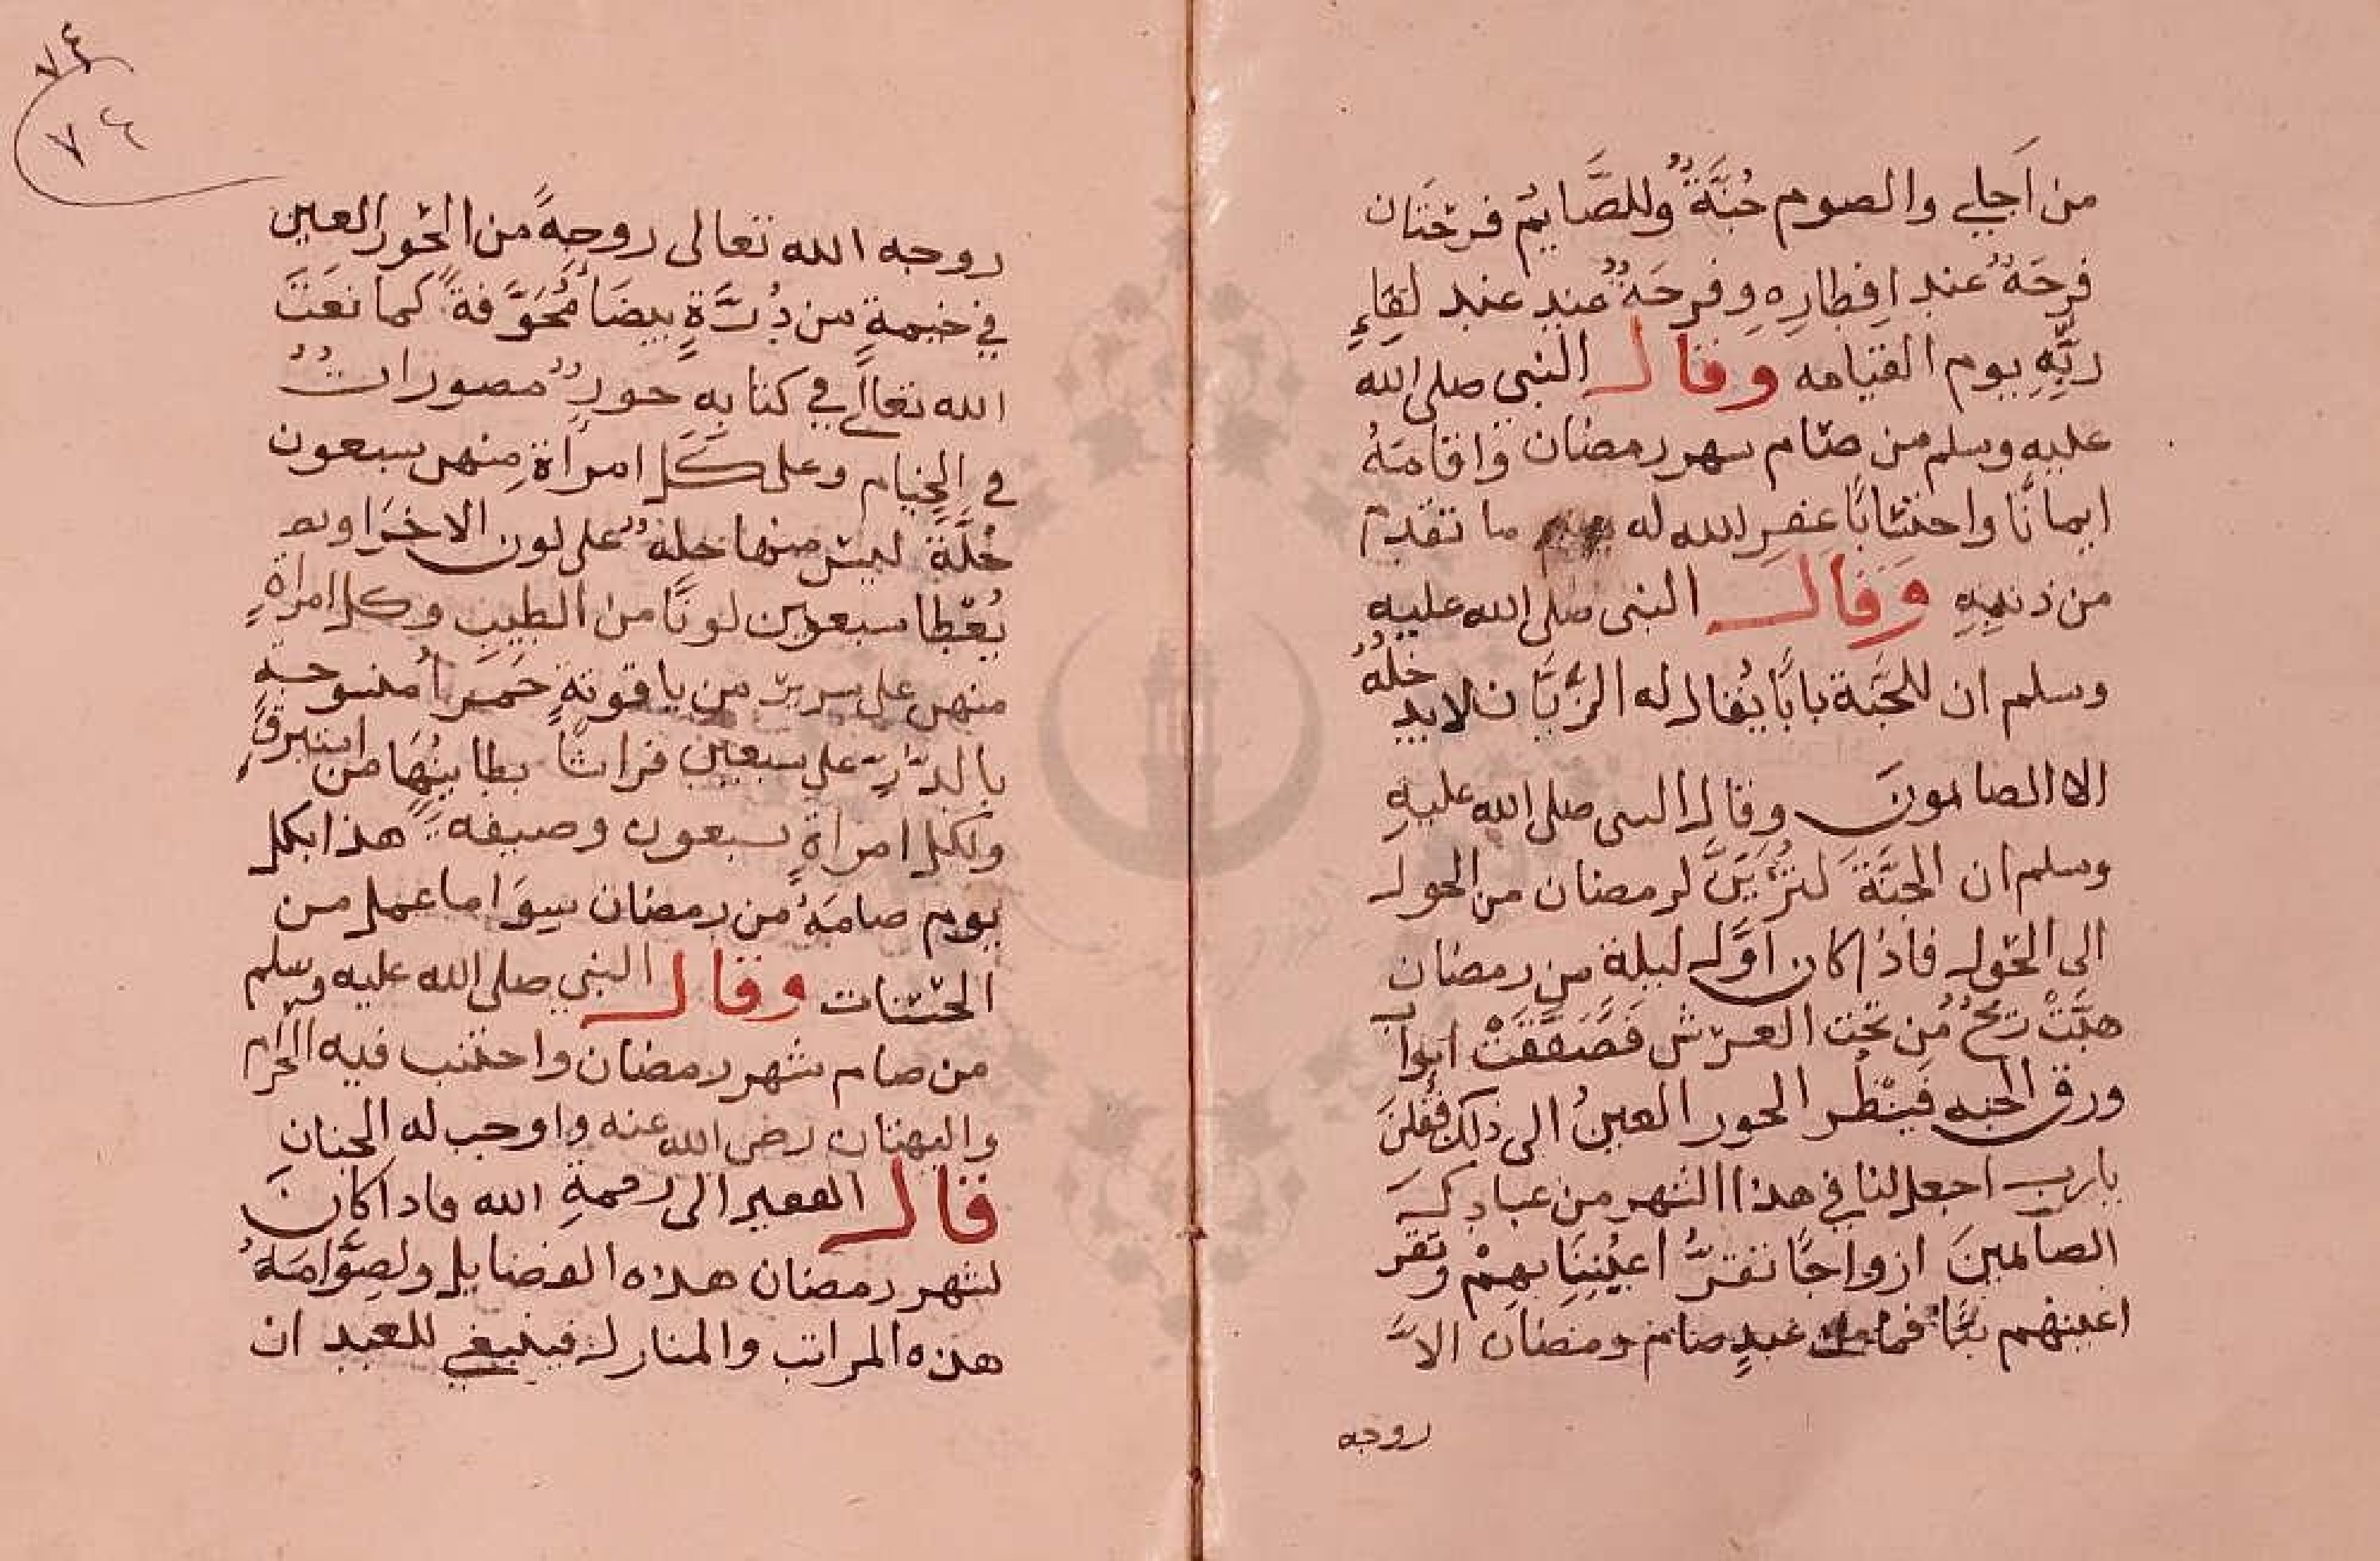 من اَجلي والصوم جُنَّةٌ وللصَّايم فرحَتان
فرحَةٌ عند افطارِهِ وفرحَةٌ عند عند لقاءِ
ربِّهِ يوم القيامه وقال النبي صلى الله
عليه وسلم من صَام شهر رمضان وَاقامَهُ
ايمانًا واحتسَابًا غفر الله له ما تقدم
من ذنبِهِ وقال النبى صلى الله عليه
وسلم ان للجَنة بابًا يُقال له الرَّيَّان لا يدخلهُ
الا الصايمونَ وقال النبى صلى الله عليهِ
وسلم ان الجنَّةَ لتزَّيَنُ لرمضان من الحول
الى الحَول فاذا كان اَوَّل ليلة من رمضان
هبَّتْ ريحٌ من تحت العرش فَصَفقَتْ ابواب
ورق الجنه فينْظُر الحور العينُ الى ذلك فقلنَ
يارب اجعل لنا في هذا الشهر من عبادكَ
الصَايمينَ ازواجًا تقرُّ اعيُننا بهِمْ وتقر
اعينهم بنَا فما من عبدٍ صام رمضان الاَّ
زوجه
٧٤
٧٤
زوجه الله تعالى زوجةً من الحور العين
في خيمةٍ من دُرَّةٍ بيضَأ مُجَوَّفةً كما نعَتَ
الله تعالى في كتابهِ حورٌ مقصوراتٌ
في الخِيام وعلى كلِ امراةٍ مِنهن سبعون
حُلَّةً ليسَ منها حلةٌ على لون الاخرَا و
يُعْطا سبعين لونًا من الطيبِ وكل امراةٍ
منهن على سرير من ياقوتةٍ حَمرَأ منسوجةٍ
بالدرِّ على سبعين فراشًا بطاينُهَا من استبرقٍ
ولكل امراةٍ سبعون وصيفه هذا بكل
يوم صامَهُ من رمضان سِوَا ما عمل من
الحَسَنات وقال النبي صلى الله عليه وسلم
من صام شهر رمضان واجتنب فيه الحرام
والبهتان رضى الله عنه واوجب له الجنان
قال الفقير الى رحمةِ الله فاذا كانَ
لشهر رمضان هذه الفضايل ولصوَّامَهُ
هذه المراتب والمنازل فينبغي للعبد ان